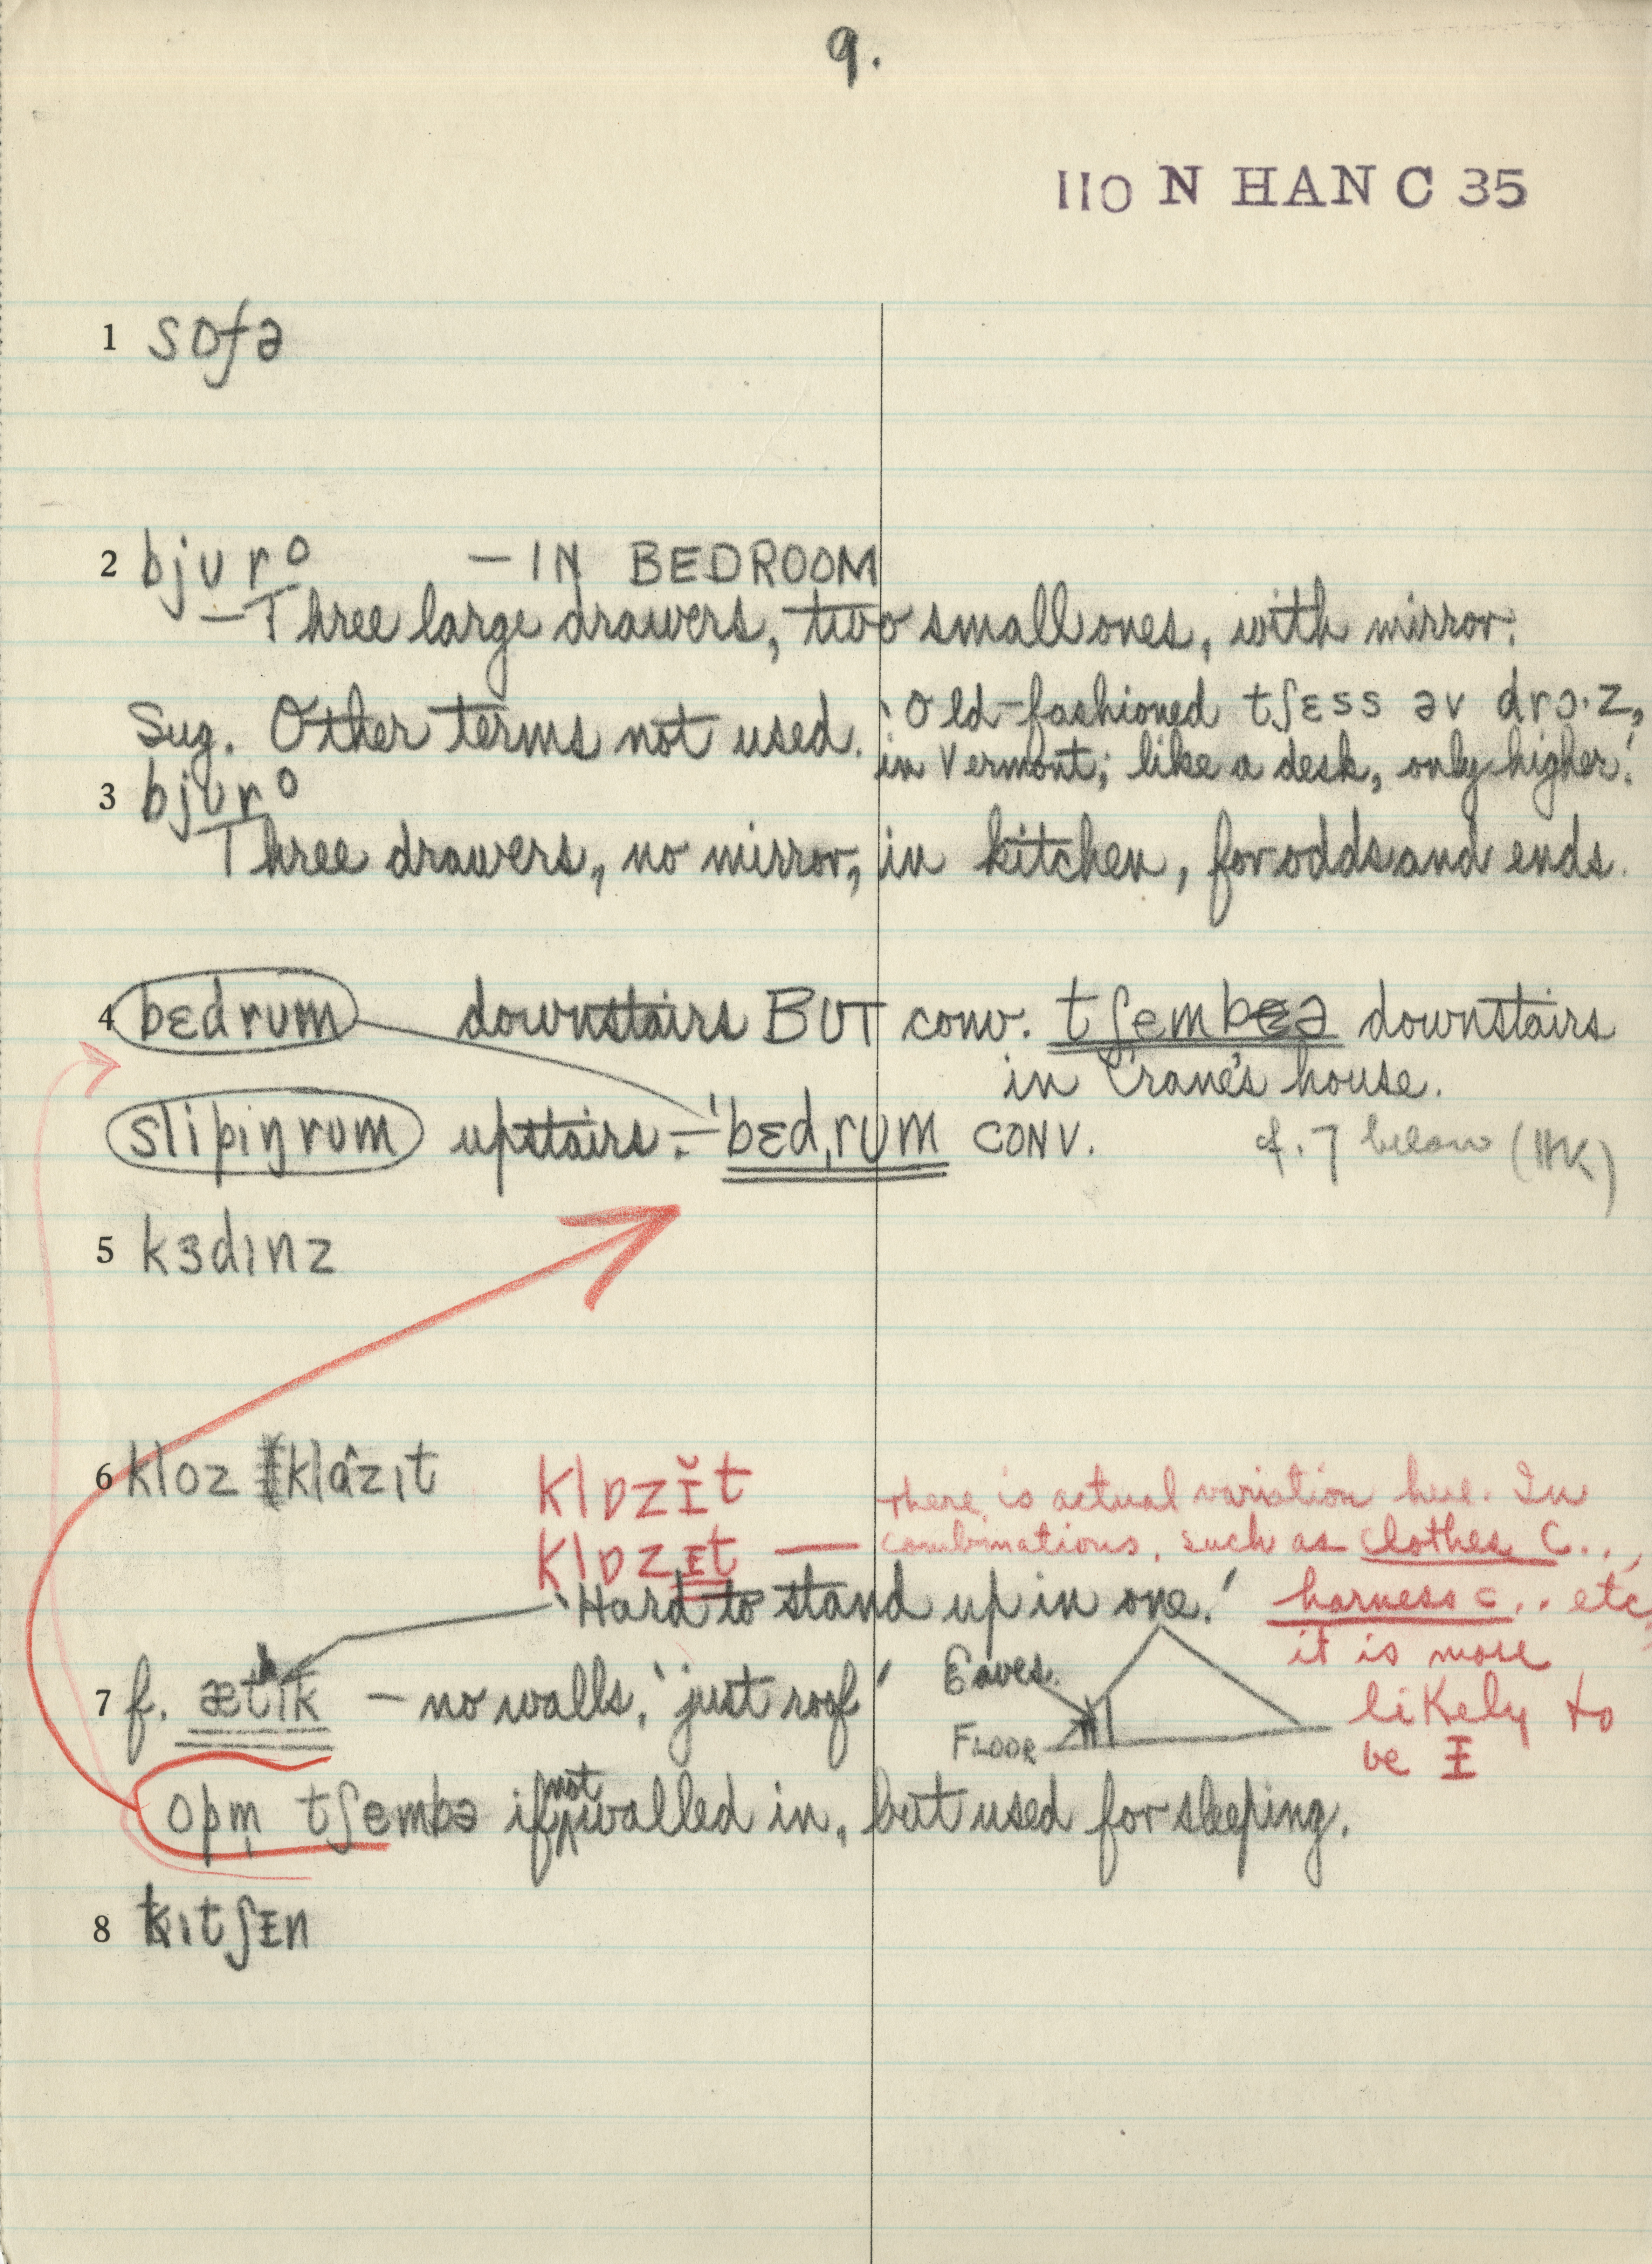 9.
110 N HAN C 35
1 sofə
2 bjʊro — IN BEDROOM
— Three large drawers, two small ones, with mirror.
Sug. Other terms not used. 'Old-fashioned tʃɛss əv drɔ·z,
in Vermont; like a desk, only higher.'
3 bjʊro
Three drawers, no mirror, in kitchen, for odds and ends.
4 bɛdrʊm downstairs BUT conv. downstairs
in Crane's house.
slipiŋrʊm upstairs. — 'bɛdˌrʊm CONV. cf. 7 below (HK)
5 kɜdɪnz
6 kloz klâzɪt
klɒzɪ̆t there is actual variation here. In
klɒzɪt — combinations, such as clothes c..,
'Hard to stand up in one.' harness c... etc
it is more
7 f. ætɪk — no walls, 'just roof' Eaves. likely to
FLOOR be ɪ
opm̩ tʃembə if not walled in, but used for sleeping.
8 kɪtʃɪn